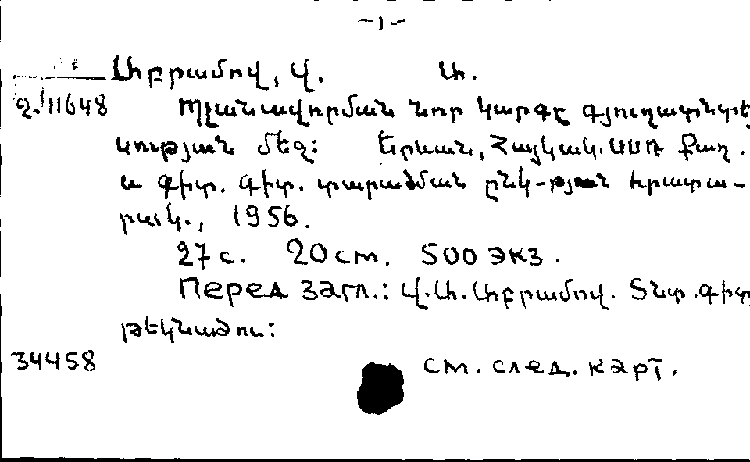 -1-
Աբրամով, Վ. Ա.
2/11648 Պլանավորման նոր կարգը գյուղատնտե
սության մեջ: Երևան, Հայկակ. ՍՍՌ Քաղ.
և գիտ. գիտ. տարածման ընկ-թյան հրատա-
րակ., 1956.
27 с. 20 см. 500 экз.
Перед загл.: Վ.Ա.Աբրամով. Տնտ. գիտ
թեկնածու:
34458 см. след. карт.